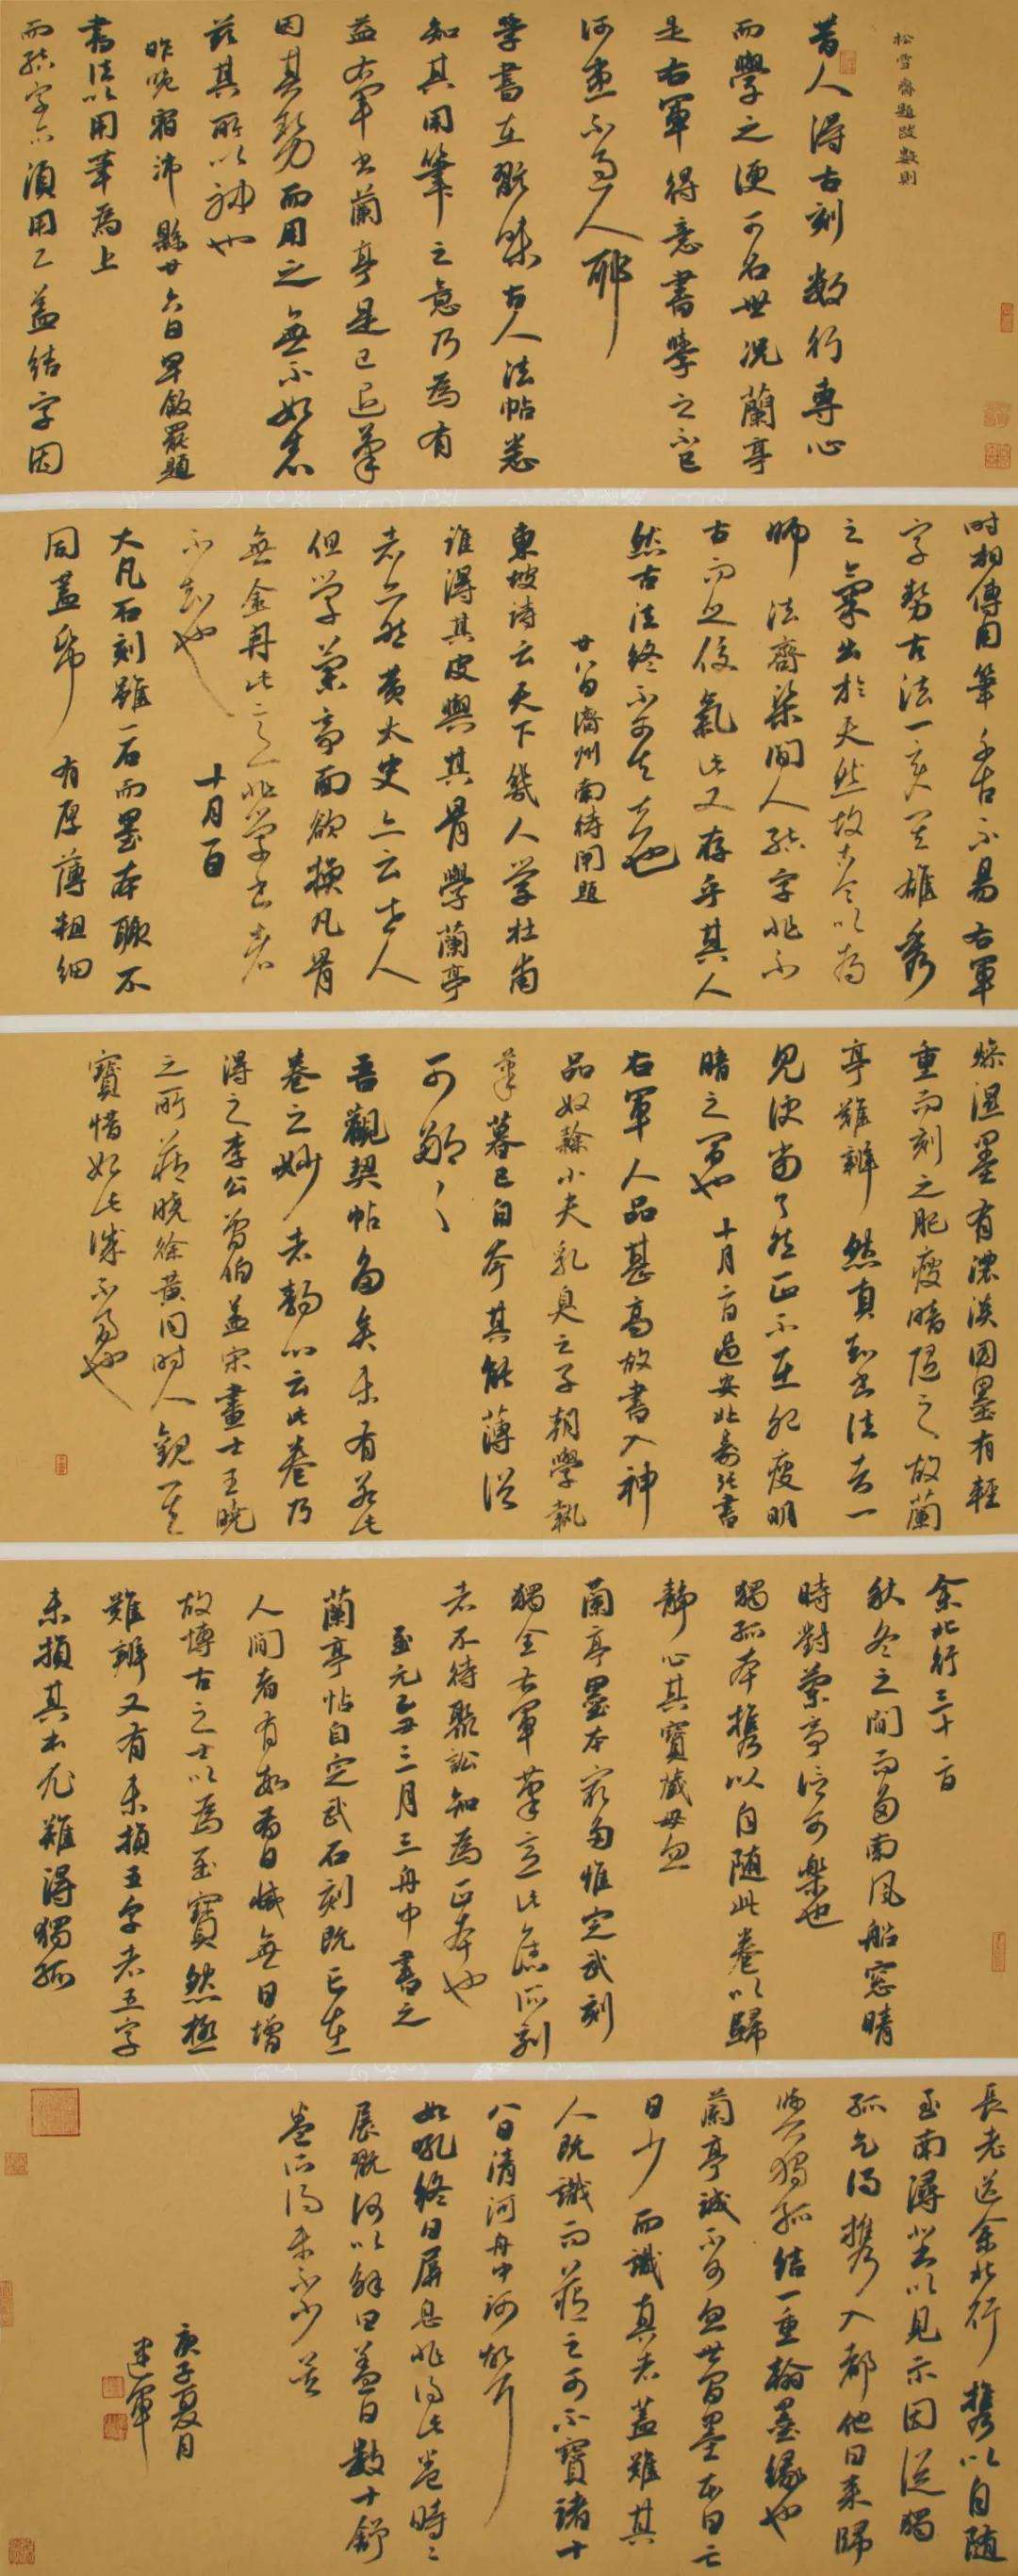 松雪齋題跋數則
昔人得古刻數行專心
而學之便可名世况蘭亭
是右軍得意書學之不已
何患不過人耶
學書在玩味古人法帖悉
知其用筆之意乃為有
益右軍書蘭亭是已退筆
因其勢而用之無不如志
茲其所以神也
昨晚宿沛縣廿六日早飯罷題
書法以用筆為上
而結字亦須用工蓋結字因
時相傳用筆千古不易右軍
字勢古法一變其雄秀
之氣出於天然故古今以為
師法齊梁間人結字非不
古而乏俊氣此又存乎其人
然古法終不可失也
廿八日濟州南待閘題
東坡詩云天下幾人學杜甫
誰得其皮與其骨學蘭亭
者亦然黃太史亦云世人
但學蘭亭面欲換凡骨
無金丹此意非學書者
不知也
十月一日
大凡石刻雖一石而墨本輒不
同蓋紙有厚薄粗細
燥濕墨有濃淡用墨有輕
重而刻之肥瘦明暗隨之故蘭
亭難辨然真知書法者一
見便當了然正不在肥瘦明
暗之間也
十月二日過安北壽張書
右軍人品甚高故書入神
品奴隸小夫乳臭之子朝學執
筆暮已自夸其能薄俗
可鄙々
吾觀禊帖多矣未有若此
卷之妙者靜心云此卷乃
得之李公曾伯蓋宋畫士王曉
之所藏曉徐黃同時人觀其
寶惜如此誠不易也
余北行三十二日
秋冬之間而多南風船窓晴
時對蘭亭信可樂也
獨孤本攜以自隨此卷以歸
靜心其寶藏毋忽
蘭亭墨本最多惟定武刻
獨全右軍筆意此舊所刻
者不待聚訟知為正本也
至元己丑三月三舟中書之
蘭亭帖自定武石刻既亡在
人間者有數有日減無日增
故博古之士以為至寶然極
難辨又有未損五字者五字
未損其本尤難得獨孤
長老送余北行攜以自隨
至南潯北出以見示因從獨
孤乞得攜入都他日來歸
與獨孤結一重翰墨緣也
蘭亭誠不可忽世間墨本日亡
日少而識真者蓋難其
人既識而藏之可不寶諸十
八日清河舟中河聲
如吼終日屏息非得此卷時〻
展玩何以解日蓋日數十舒
卷所得未不少其
庚子夏月
建軍